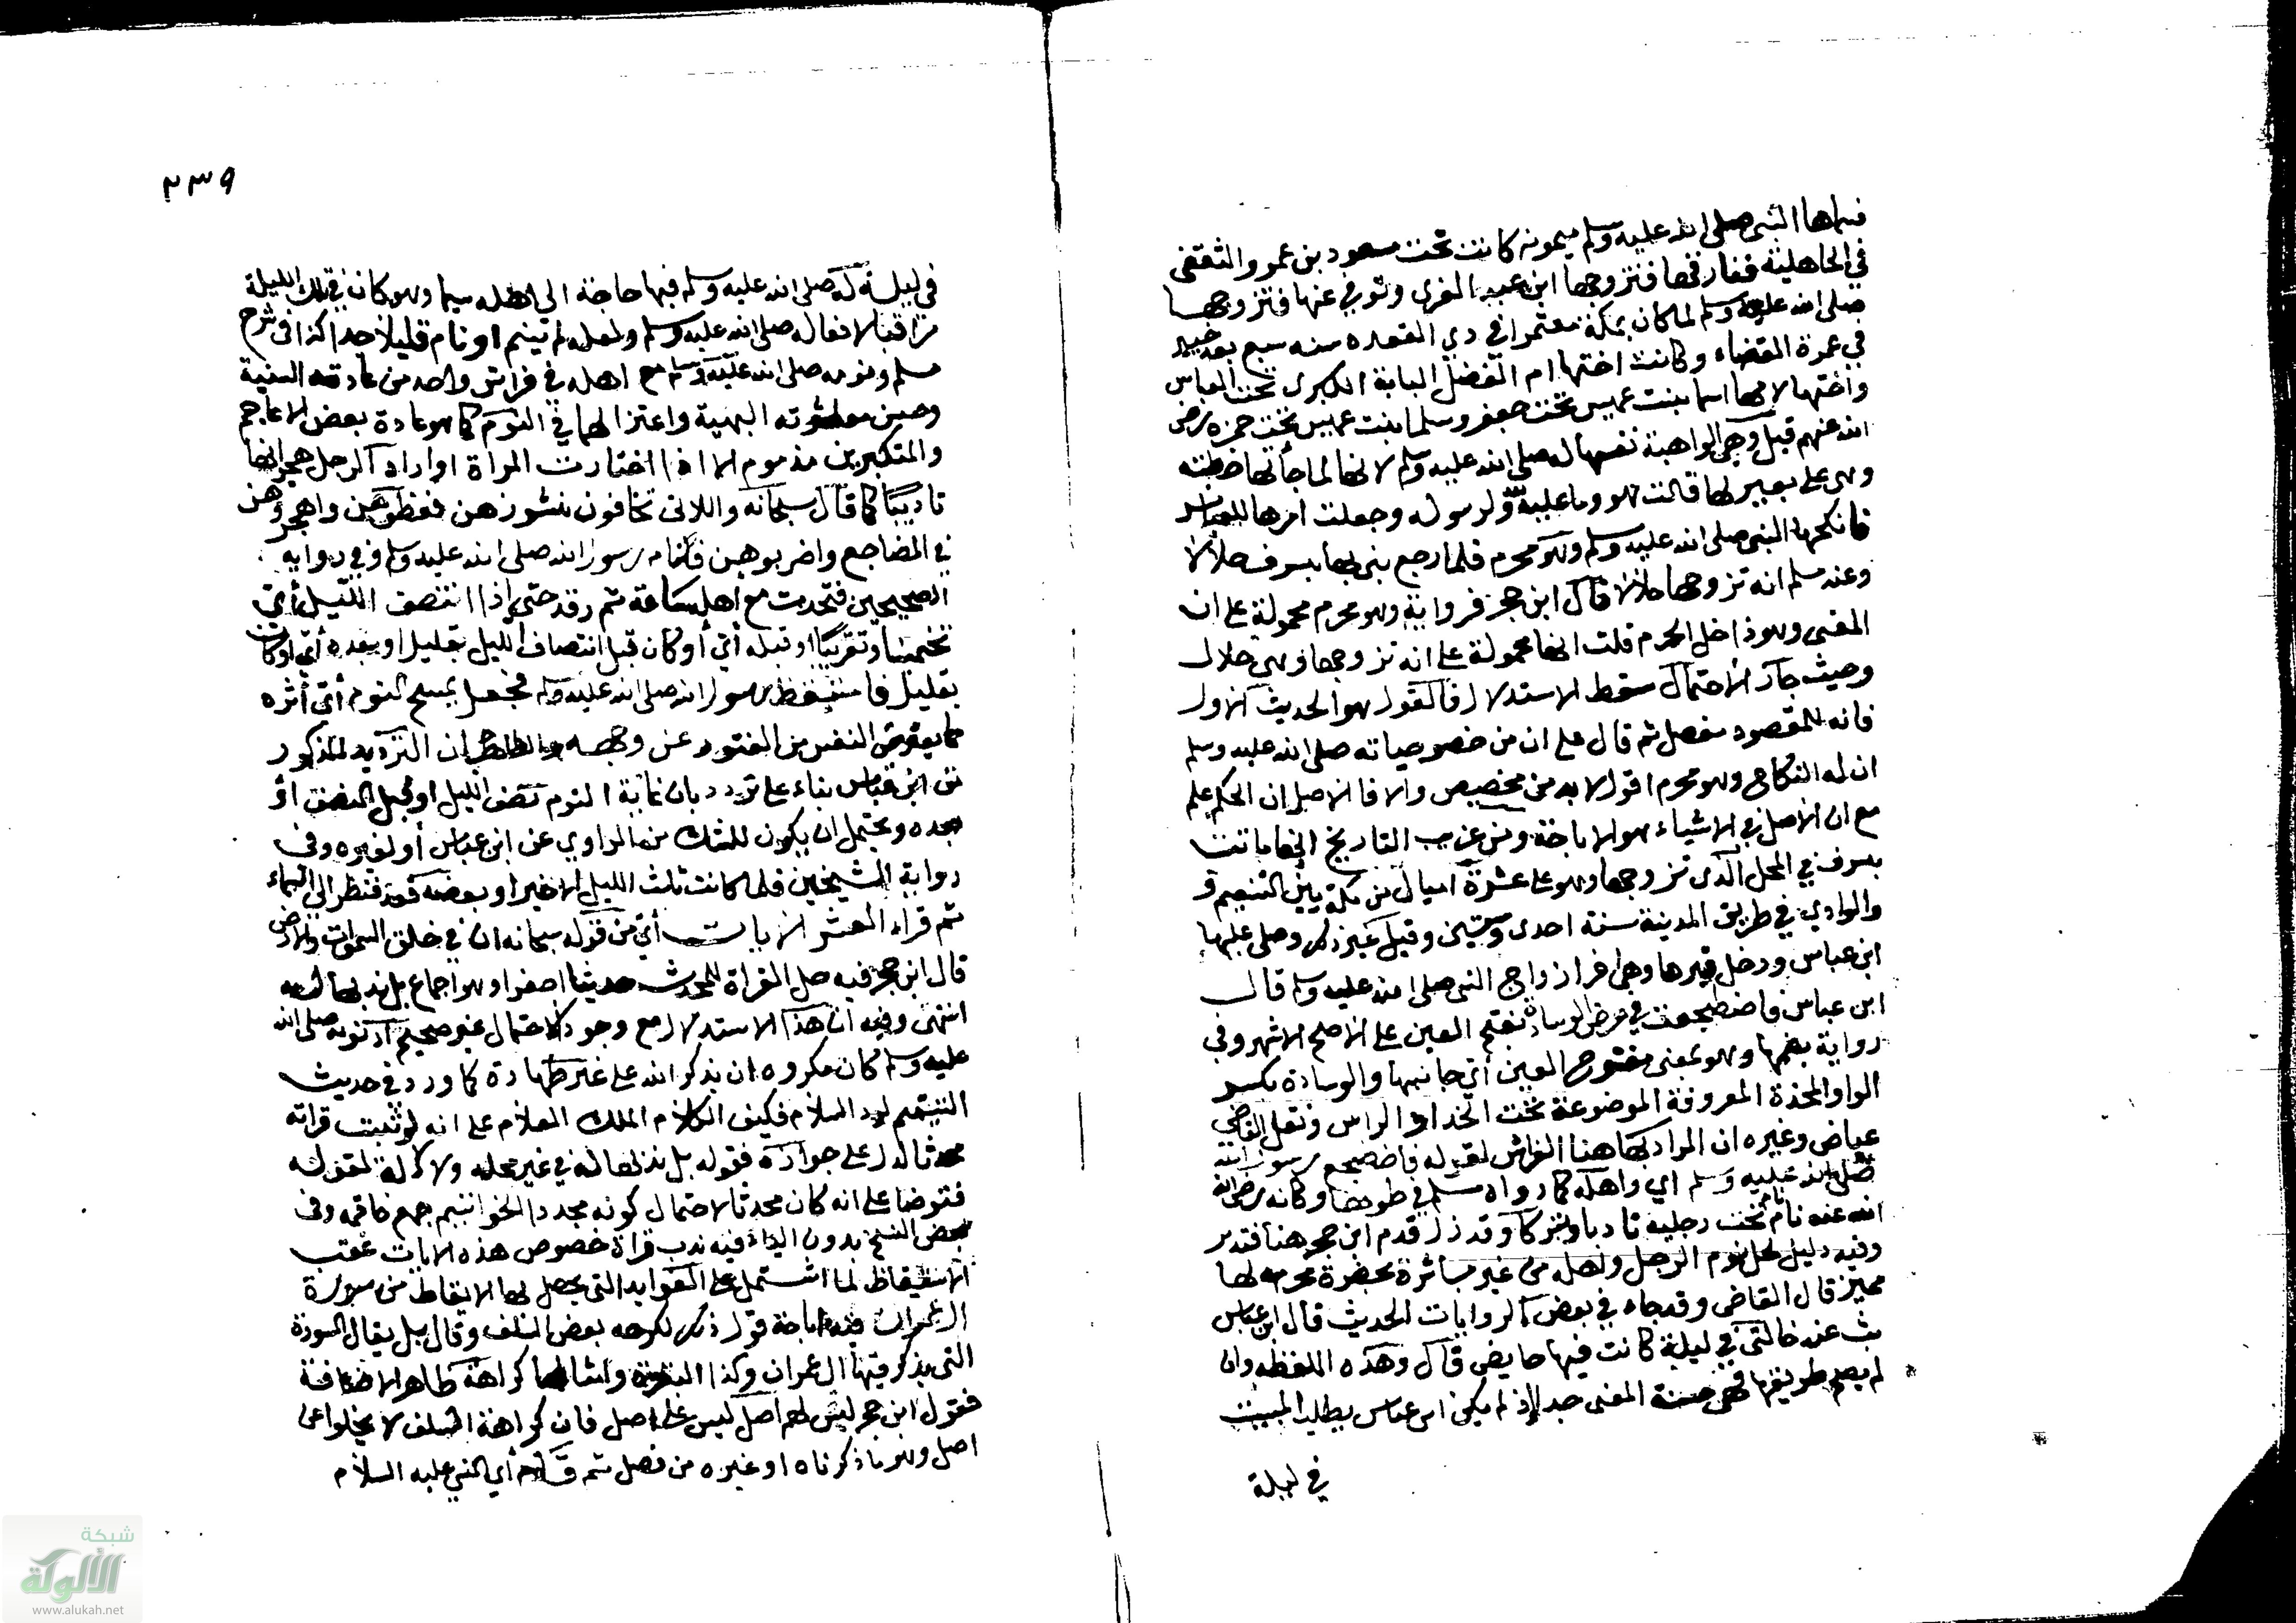 فسماها النبي صلى الله عليه وسلم ميمونة كانت تحت مسعود بن عمرو الثقفي
في الجاهلية ففارقها فتزوجها ابن عبد العزى وتوفي عنها فتزوجها
صلى الله عليه وسلم لما كان بمكة معتمرا في ذي القعدة سنة سبع بعد خيبر
في عمرة القضاء وكانت اختها ام الفضل لبابة الكبرى تحت العباس
واختها لامها اسما بنت عميس تحت جعفر وسلما بنت عميس تحت حمزة رضي
الله عنهم قيل وهي الواهبة نفسها له صلى الله عليه وسلم لانها لما جاءتها خطبته
وهي على بعير لها قالت هو وما عليه لله ولرسوله وجعلت امرها للعباس
فانكحها النبي صلى الله عليه وسلم وهو محرم فلما رجع بنى بها بسرف حلالا
وعند مسلم انه تزوجها حلالا قال ابن حجر فرواية وهو محرم محمولة على ان
المعنى وهو داخل الحرم قلت انها محمولة على انه تزوجها وهي حلال
وحيث جاز الاحتمال سقط الاستدلال فالقول هو الحديث الاول
فانه للمقصود مفصل ثم قال على ان من خصوصياته صلى الله عليه وسلم
ان له النكاح وهو محرم اقول لا بد من مخصص والا فالاصل ان الحكم علم
مع ان الاصل في الاشياء هو الاباحة ومن غريب التاريخ انها ماتت
بسرف في المحل الذي تزوجها وهو على عشرة اميال من مكة بين التنعيم و
والوادي في طريق المدينة سنة احدى وستين وقيل غير ذلك وصلى عليها
ابن عباس ودخل قبرها وهي اخر ازواج النبي صلى الله عليه وسلم قال
ابن عباس فاضطجعت في عرض الوسادة بفتح العين على الاصح الاشهر وفي
رواية بضمها وهو بمعنى مفتوح العين أي جانبها والوسادة بكسر
الواو المخدة المعروفة الموضوعة تحت الخد او الراس ونقل القاضي
عياض وغيره ان المراد بها هنا الفراش لقوله فاضطجع رسول الله
صلى الله عليه وسلم اي واهله كما رواه مسلم في طولها وكانه رضي الله
الله عنه نام تحت رجليه تادبا وتبركا وقد زل قدم ابن حجر هنا فتدبر
وفيه دليل لحل نوم الرجل واهله من غير مباشرة بحضرة محرم لها
مميز قال القاضي وقد جاء في بعض الروايات الحديث قال ابن عباس
بت عند خالتي في ليلة كانت فيها حايض قال وهذه اللفظه وان
لم يصح طريقها فهي حسنة المعنى جدا اذ لم يكن ابن عباس يطلب المبيت
في ليلة
٢٣٩
في ليلة له صلى الله عليه وسلم فيها حاجة الى اهله سيما وهو كان في تلك الليلة
مراقبا لافعاله صلى الله عليه وسلم ولعله لم ينم او نام قليلا جدا كذا في شرح
مسلم ونومه صلى الله عليه وسلم مع اهله في فراش واحد من عادته السنية
وحسن معاشرته البهية واعتزالها في النوم كما هو عادة بعض الاعاجم
والمتكبرين مذموم الا اذا اختارت المراة او اراد الرجل هجرانها
تاديبا كما قال سبحانه واللاتي تخافون نشوزهن فعظوهن واهجروهن
في المضاجع واضربوهن فنام رسول الله صلى الله عليه وسلم وفي رواية
الصحيحين فتحدث مع اهله ساعة ثم رقد حتى اذا انتصف الليل أي
تخمينا وتقريبا او قبله أي أو كان قبل انتصاف الليل بقليل او بعده أي او كان
بقليل فاستيقظ رسول الله صلى الله عليه وسلم فجعل يمسح النوم أي أثره
مما يعترض النفس من الفتور عن وجهه والظاهر ان الترديد المذكور
من ابن عباس بناء على تردد بان غاية النوم نصف الليل او قبل النصف او
بعده ويحتمل ان يكون للشك من الراوي عن ابن عباس أو لغيره وفي
رواية الشيخين فلما كانت ثلث الليل الاخير او بعضه قعد فنظر الى السماء
ثم قراء العشر الايات أي من قوله سبحانه ان في خلق السموات والارض
قال ابن حجر فيه حل القراة للمحدث حديثا اصغر وهو اجماع بل ندبها له
انتهى وفيه ان هذا الاستدلال مع وجود الاحتمال غير صحيح اذ نومه صلى الله
عليه وسلم كان مكروه ان يذكر الله على غير طهارة كما ورد في حديث
التيمم لرد السلام فكيف الكلام الملك العلام على انه لو ثبت قراته
محدثا لدل على جوازه فقوله بل ندبها له في غير محله ولا دلالة لقوله
فتوضا على انه كان محدثا لاحتمال كونه مجددا الخواتيم جمع خاتمة وفي
بعض النسخ بدون الياء وفيه ندب قراة خصوص هذه الايات عقب
الاستيقاظ لما اشتمل على الفوايد التي يحصل بها الايقاظ من سورة
ال عمران فيه اباحة قول ذلك لكرهه بعض السلف وقال بل يقال السورة
التي يذكر فيها ال عمران وكذا البقرة وامثالها كراهة ظاهر الاضافة
فقول ابن حجر ليس لهم اصل ليس على اصل فان كراهة السلف لا يخلو عن
اصل وهو ما ذكرناه او غيره من فصل ثم قام أي النبي عليه السلام
شبكة
الألوكة
www.alukah.net